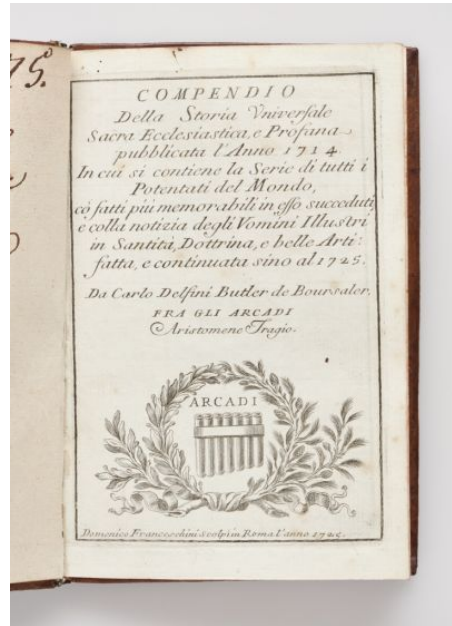 75.
COMPENDIO
Della Storia Vniversale
Sacra Ecclesiastica, e Profana
pubblicata l'Anno 1714.
In cui si contiene la Serie di tutti i
Potentati del Mondo,
cō fatti piú memorabili in esso succeduti,
e colla notizia degli Vomini Illustri
in Santitá, Dottrina, e belle Arti:
fatta, e continuata sino al 1725.
Da Carlo Delfini Butler de Boursaler,
FRA GLI ARCADI
Aristomene Tragio.
ARCADI
Domenico Franceschini Scolpì in Roma l'anno 1725.